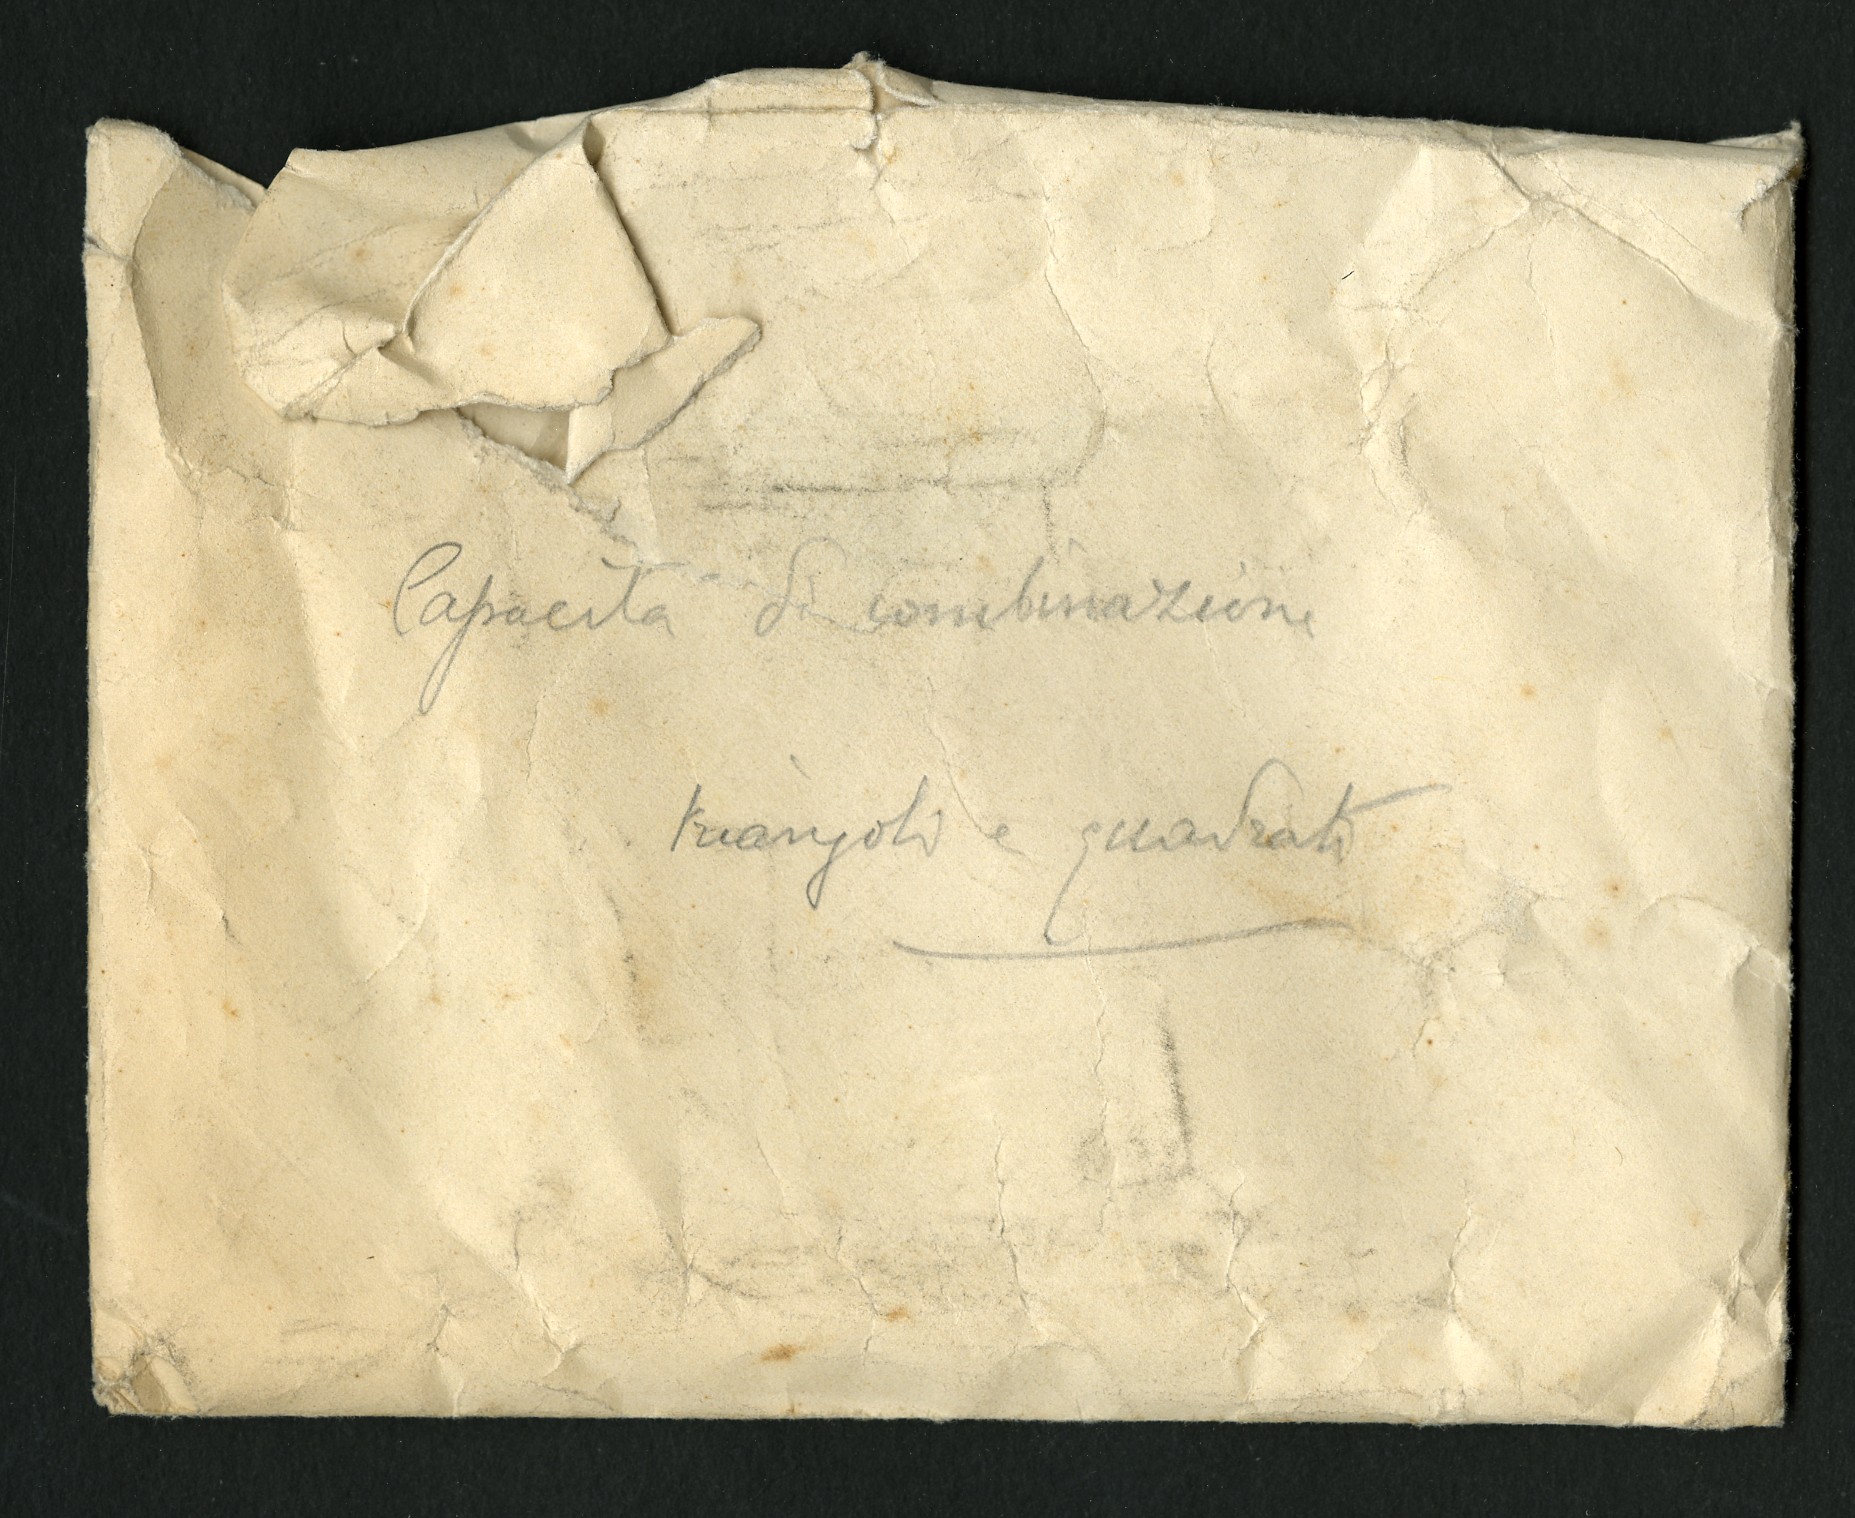 Capacità di combinazione
triangoli e quadrati